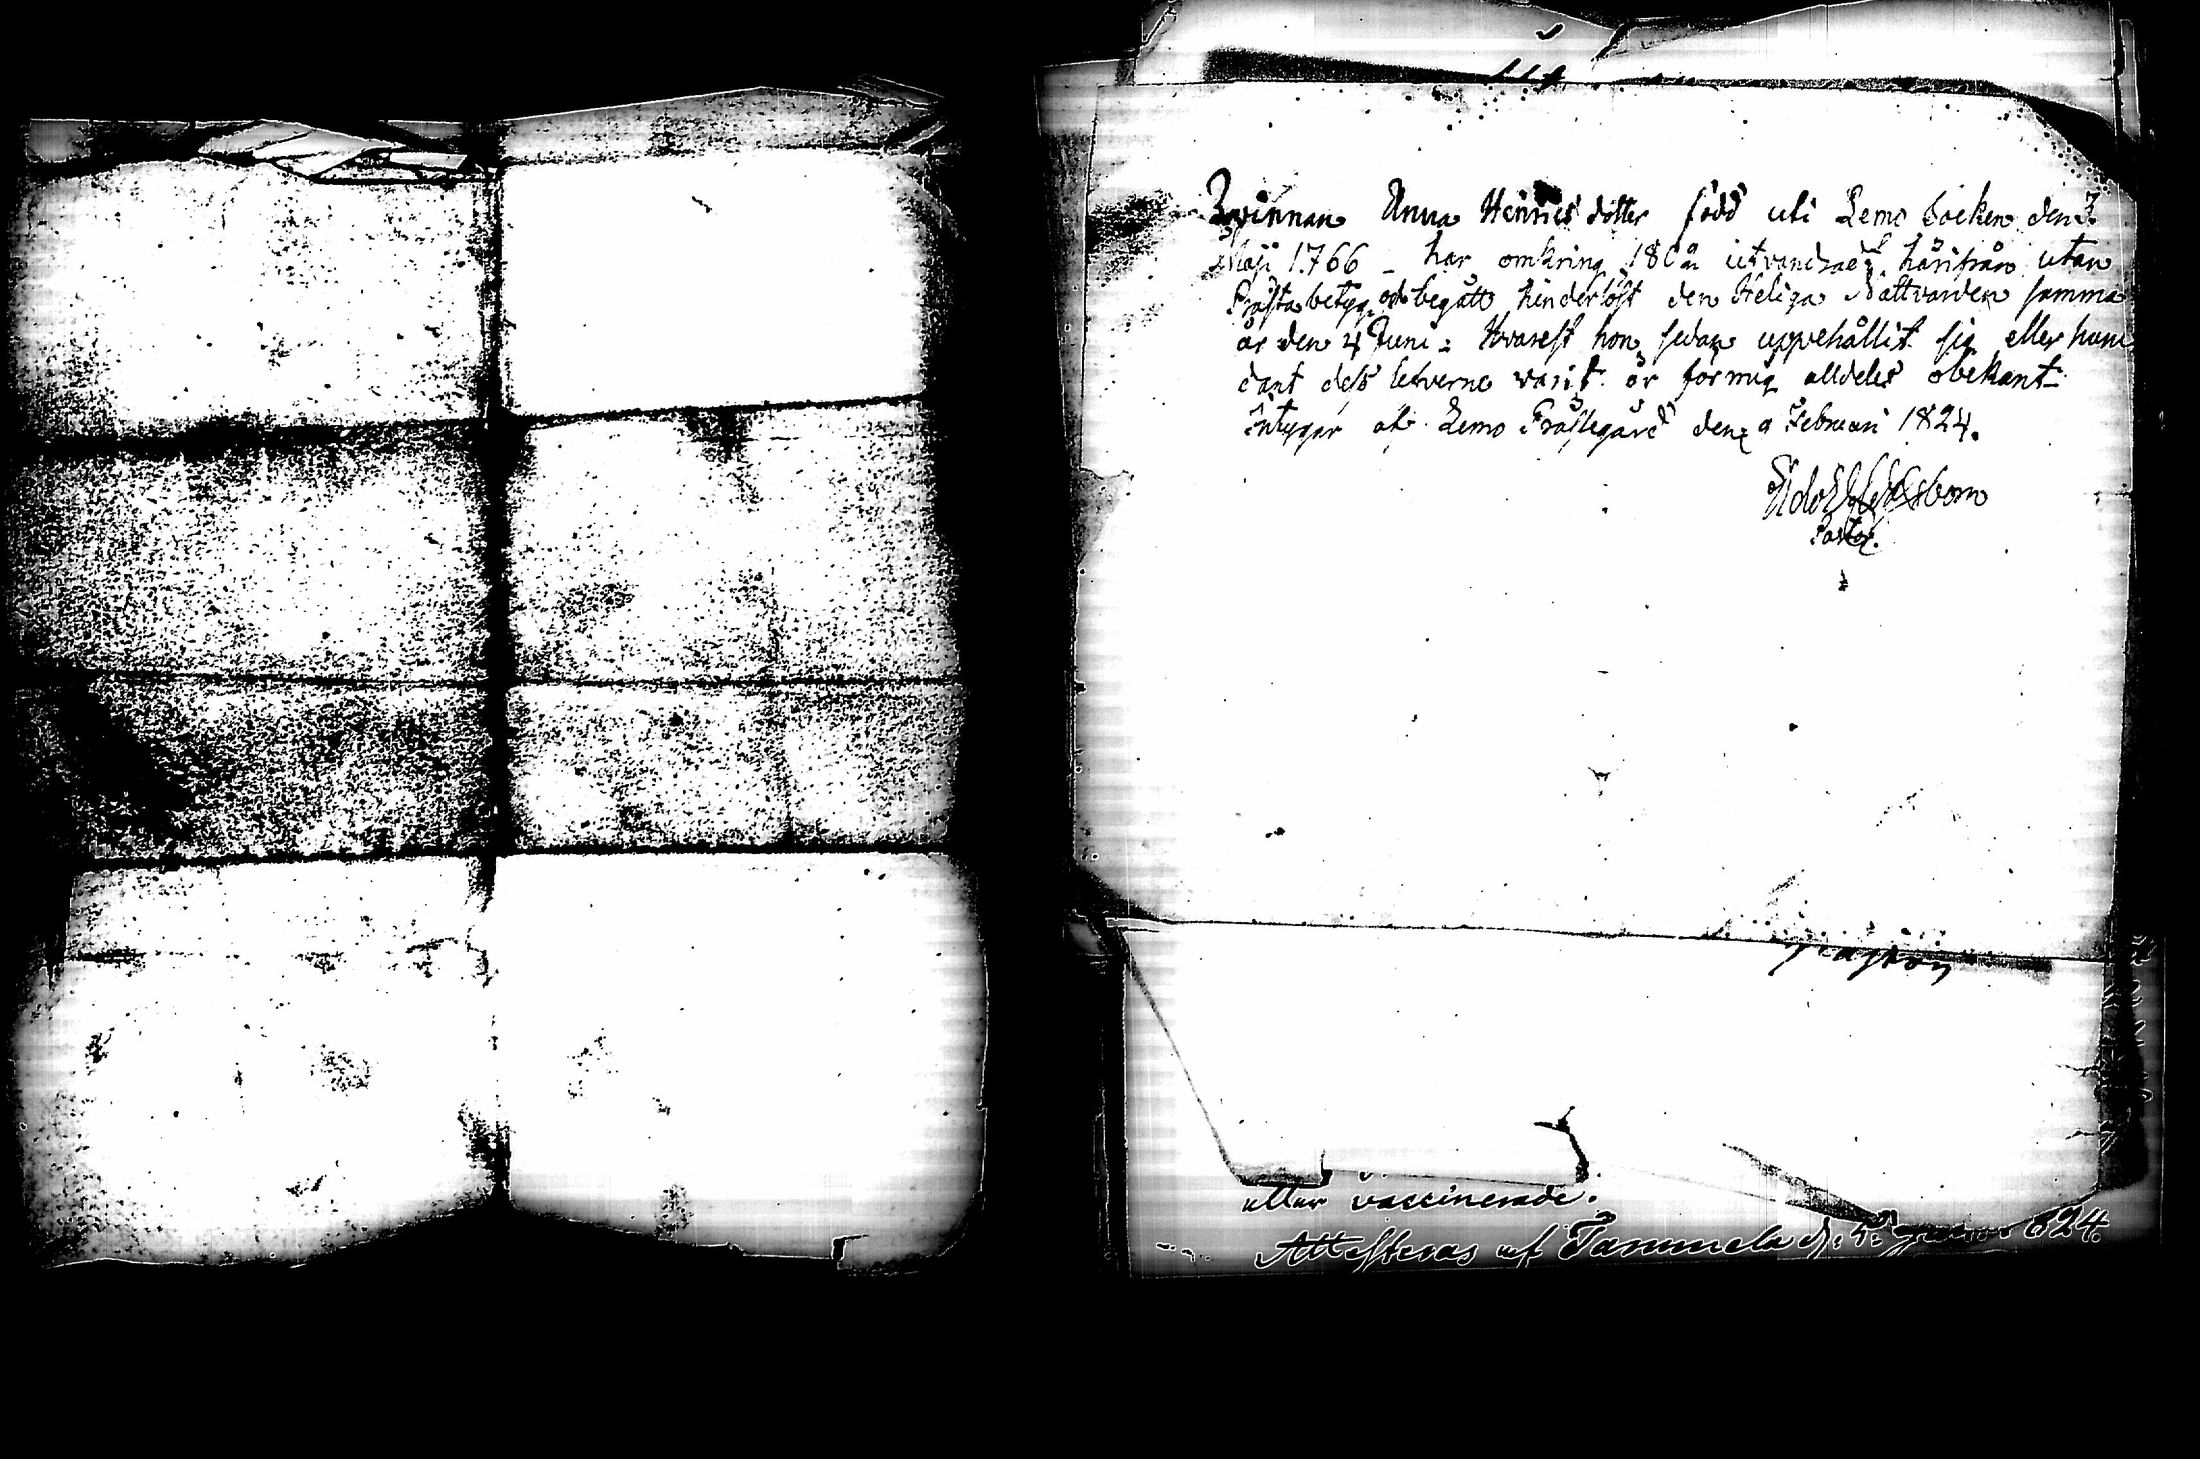 Qvinnan Anna Henrics dotter född uti Lemo Socken den 3
Maji 1766 - har omkring 180 utvandrat härifrån utan
Prästa betyg, och begått hinderlöst den Heliga Nattvarden samma
år den 4 Juni: Hvarest hon sedan uppehållit sig eller huru
dant dess lefverne varit är för mig alldeles obekant
Intygar af Lemo Prästegård den 9 Februari 1824.
Pastor.
eller vaccinerade.
Attesteras af Tammela d. 824.